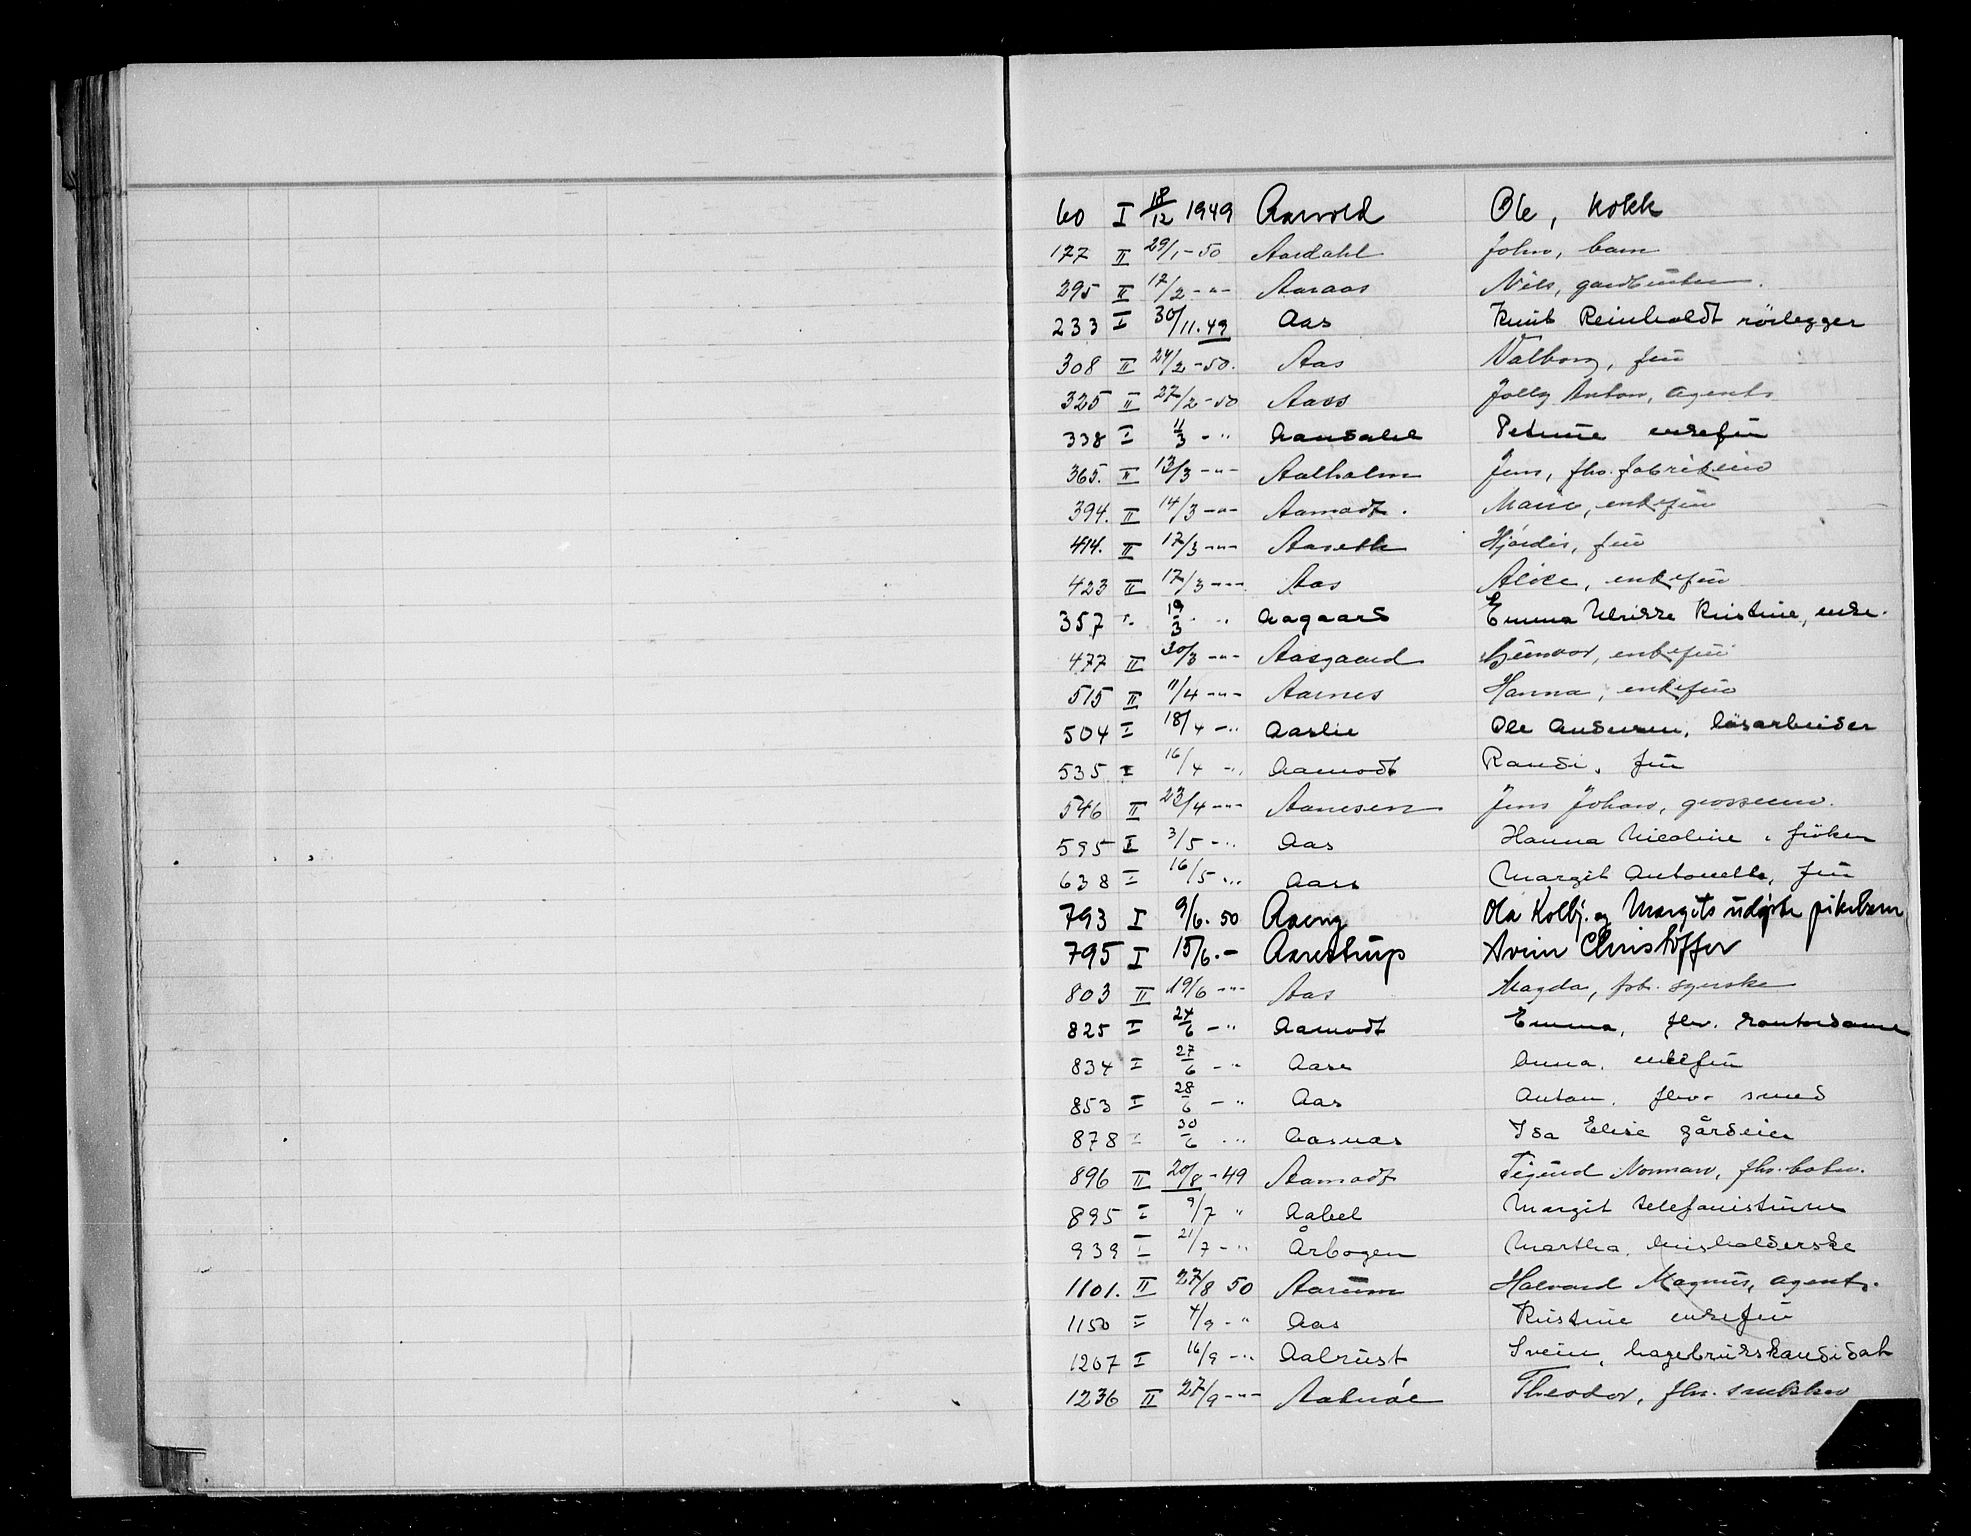 60 I 18/12 1949 Aarvold Ole, kokk
177 II 29/1 - 50 Aardahl John, barn
295 II 17/2 - " - Aaraas Nils, gardbruker.
233 I 30/11.49 Aas Knut Reinholdt rörlegger
308 II 24/2 - 50. Aas Valborg, fru
325 II 27/2 - 50 Aass Jolly Anton, agent
338 I 11/3 - " Petrine enkefru
365. II 13/3 - " - Aalholm Jens, fhv. fabrikeier
394. II 14/3 - " - Aamodt. Marie, enkefru
414. II 17/3 - " - Aaseth Hjördis, fru
423 II 17/3 - " - Aas Alice, enkefru
357 I. 19/3 " Aagaard Emma Ulrikke Kristine, enke.
477 II 30/3 - " - Aasgaard Gunvor, enkefru
515 II 11/4 - " - Aarnes Hanna, enkefru
504 I 18/4 - " Aaslie Ole Andersen, lösarbeider
535 I 16/4 - " Aamodt Randi, fru
546 II 23/4 - " - Aanesen Jens Johan, grosserer.
595 I 3/5 - " Aas Hanna Nicoline, fröken
638 I 16/5 " Aass Margit Antonette, fru
793 I 9/6. 50 Aaeng Ola Kolbj. og Margits udöpte pikebarn
795 I 15/6. - Aarestrup Svein Christoffer
803 II 19/6 - " - Aas Magda, fhv. syerske
825 I 24/6 - " Aamodt Emma, fhv. kontordame
834 I 27/6 - " Aase Anna, enkefru
853 I 28/6 - " Aas Anton, fhv. smed
878 I 30/6 " Aasnæs Ida Elise gårdeier
896 II 20/8 - 49 Aamodt Sigurd Norman, fhv.
895 I 9/7 " Aabel Margit telefonistinne
939 I 21/7 - " Årbogen Martha, husholderske
1101. II 27/8 50 Aarum Halvard Magnus, agent.
1150 I 4/9 - " Aas Kristine enkefru
1207 I 16/9 - " Aabrust Svein, hagebrukskandidat
1236 II 27/9 - " - Theodor, fhv. snekker